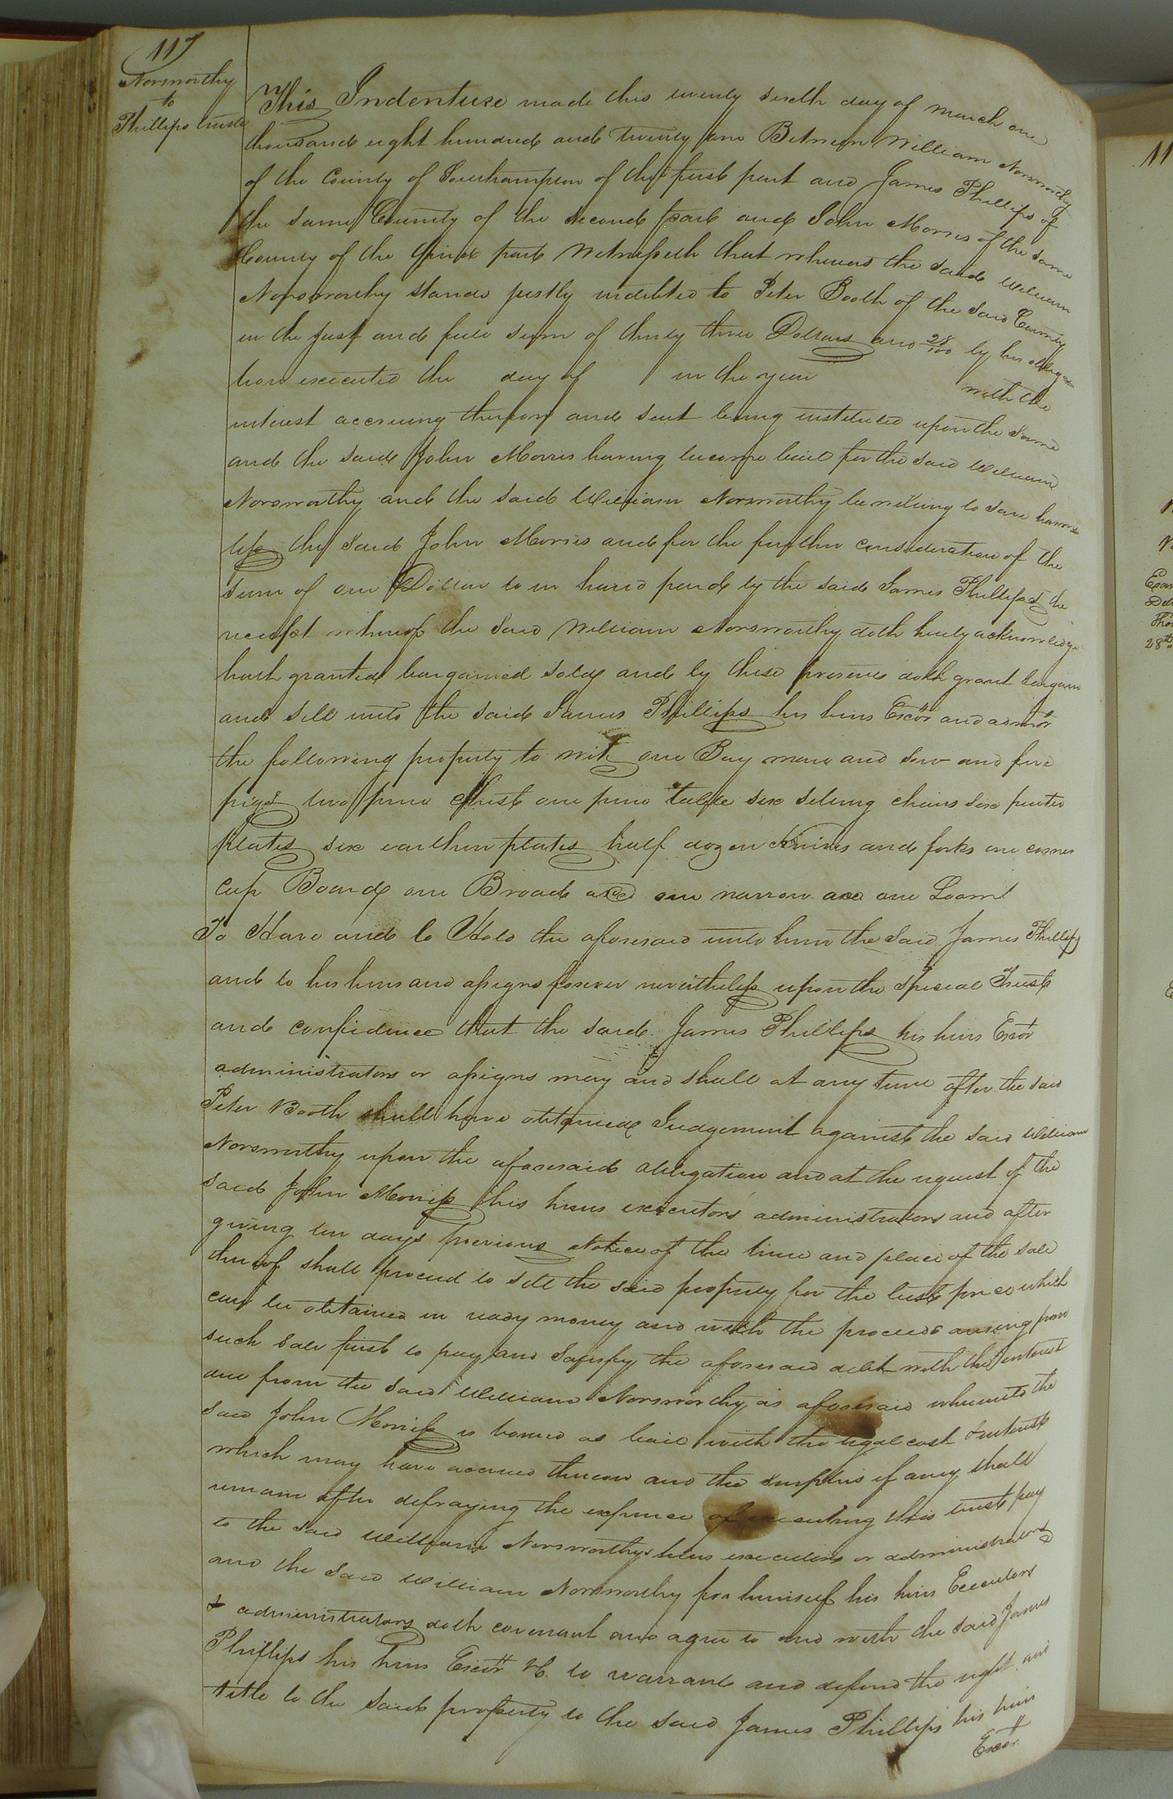 117
Norsworthy
to
Phillips trustee
This Indenture made this twenty sixth day of March one
thousand eight hundred and twenty one Between William Norsworthy
of the County of Southampton of the first part and James Phillips of
the same County of the second part and John Morris of the same
County of the third part Witnesseth that whereas the said William
Norsworthy stands justly indebted to Peter Booth of the said County
in the just and full sum of thirty three Dollars and 28/100 by his obliga
tion executed the day of in the year with the
interest accruing thereon and suit being instituted upon the same
and the said John Morris having become bail for the said William
Norsworthy and the said William Norsworthy being willing to save harm
less the said John Morris and for the further consideration of the
sum of one Dollar to in hand paid by the said James Phillips the
receipt whereof the said William Norsworthy doth hereby acknowledge
hath granted bargained sold and by these presents doth grant bargain
and sell unto the said James Phillips his heirs Excor and admor
the following property to wit one Bay mare and sow and five
pigs two pine Chest one pine table six seting chairs six puter
plates six earthen plates half dozen knives and forks one corner
cup Board one Broad axe one narrow axe one Loom
To Have and to Hold the aforesaid unto him the said James Phillips
and to his heirs and assigns forever nevertheless upon the Special Trust
and confidence that the said James Phillips his heirs Excor
administrators or assigns may and shall at any time after the said
Peter Booth shall have obtained Judgement against the said William
Norsworthy upon the aforesaid obligation and at the request of the
said John Morriss his heirs executors administrators and after
giving ten days previous Notice of the time and place of the sale
thereof shall proceed to sell the said property for the best price which
can be obtained in ready money and with the proceeds arising from
such sale first to pay and satisfy the aforesaid debt with the interest
due from the said William Norsworthy as aforesaid whereunto the
said John Morriss is bound as bail with the legal cost & interest
which may have accrued thereon and the surplus if any shall
remain after defraying the expence of executing this trust pay
to the said William Norsworthy heirs executors or administrators
and the said William Norsworthy for himself his heirs Executors
& administrators doth covenant and agree to and with the said James
Phillips his heirs Excor &c. to warrant and defend the right and
title to the said property to the said James Phillips his heirs
Excor
11
28th